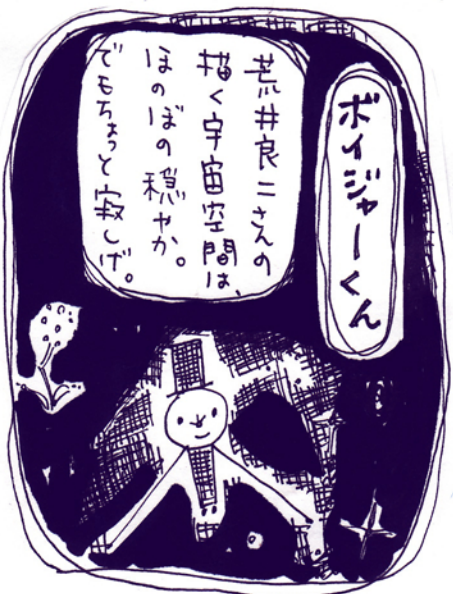 ボイジャーくん
荒井良二さんの
描く宇宙空間は、
ほのぼの穏やか。
でもちょっと寂しげ。